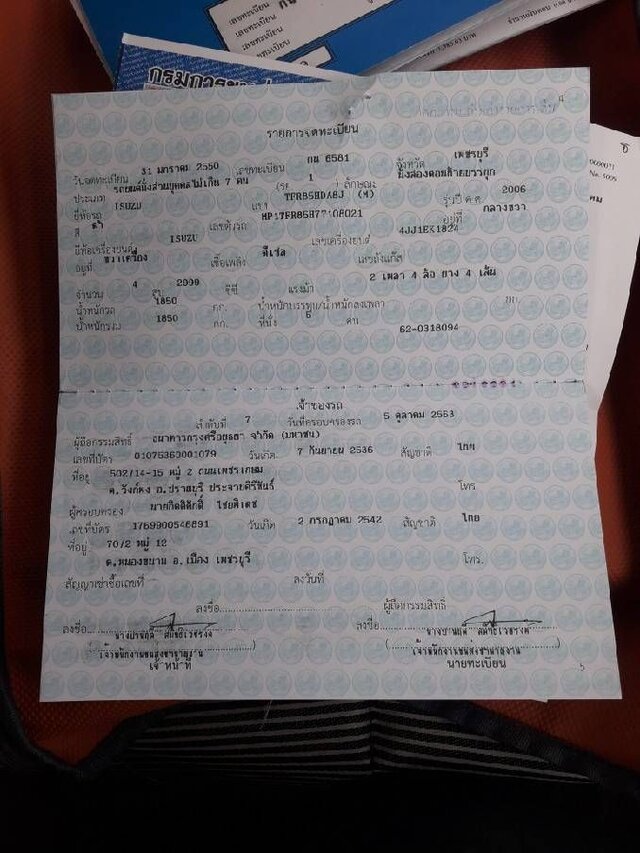 เลขทะเบียน กน
เลขทะเบียน
เลขทะเบียน
กรมการขนส่ง
รายการจดทะเบียน
วันจดทะเบียน 31 มกราคม 2550 เลขทะเบียน กน 6581 จังหวัด เพชรบุรี
ประเภท รถยนต์นั่งส่วนบุคคลไม่เกิน 7 คน (รย. 1 ) ลักษณะ นั่งสองตอนท้ายบรรทุก
ยี่ห้อรถ ISUZU แบบ TFR85HDA8J (M) รุ่นปี ค.ศ. 2006
สี ดำ เลขตัวรถ MP1TFR85H7T108021 อยู่ที่ กลางขวา
ยี่ห้อเครื่องยนต์ ISUZU เลขเครื่องยนต์ 4JJ1EK1824
อยู่ที่ ขวาเครื่อง เชื้อเพลิง ดีเซล เลขถังแก๊ส
จำนวน 4 สูบ 2999 ซีซี แรงม้า 2 เพลา 4 ล้อ ยาง 4 เส้น
น้ำหนักรถ 1850 กก. น้ำหนักบรรทุก/น้ำหนักลงเพลา กก.
น้ำหนักรวม 1850 กก. ที่นั่ง 5 คน
62-0318094
เจ้าของรถ
ลำดับที่ 7 วันที่ครอบครองรถ 5 ตุลาคม 2563
ผู้ถือกรรมสิทธิ์ ธนาคารกรุงศรีอยุธยา จำกัด (มหาชน)
เลขที่บัตร 0107536001079 วันเกิด 7 กันยายน 2536 สัญชาติ ไทย
ที่อยู่ 502/14-15 หมู่ 2 ถนนเพชรเกษม
ต.วังก์พง อ.ปราณบุรี ประจวบคีรีขันธ์ โทร
ผู้ครอบครอง นายกิตติศักดิ์ ไชยดิเรช
เลขที่บัตร 1769900546691 วันเกิด 2 กรกฎาคม 2542 สัญชาติ ไทย
ที่อยู่ 70/2 หมู่ 12
ต.หนองขนาน อ.เมือง เพชรบุรี โทร.
สัญญาเช่าซื้อเลขที่ ลงวันที่
ลงชื่อ ผู้ถือกรรมสิทธิ์
ลงชื่อ ลงชื่อ
เจ้าพนักงานขนส่งชำนาญงาน เจ้าพนักงานขนส่งชำนาญงาน
เจ้าหน้าที่ นายทะเบียน
5